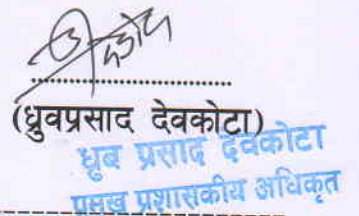 (ध्रुवप्रसाद देवकोटा)
ध्रुब प्रसाद देवकोटा
प्रमुख प्रशासकीय अधिकृत